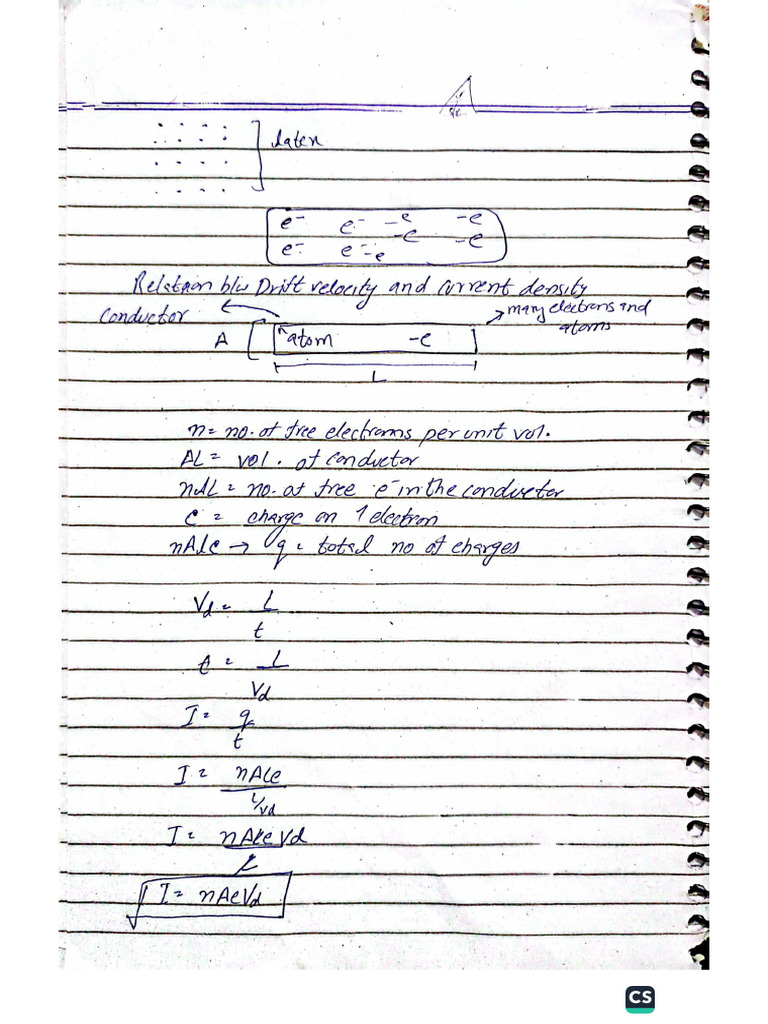 laten
e⁻ e⁻ -e -e
-e -e
e⁻ e⁻ -e
Relation b/w Drift velocity and current density
Conductor
many electrons and
atoms
A atom -e
L
n = no. of free electrons per unit vol.
AL = vol. of conductor
nAL = no. of free e⁻ in the conductor
e = charge on 1 electron
nALe → q = total no of charges
Vd = L
t
t = L
Vd
I = q
t
I = nALe
L/Vd
I = nALeVd
L
I = nAeVd
CS